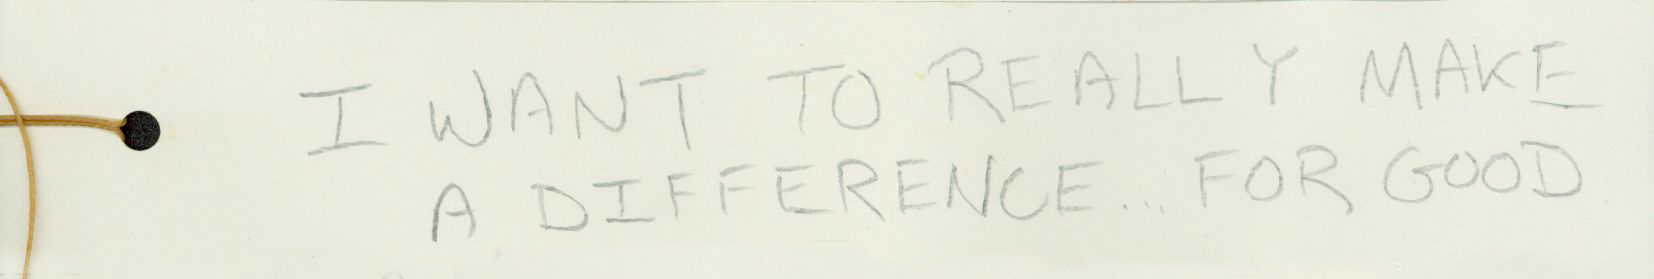 I WANT TO REALLY MAKE
A DIFFERENCE... FOR GOOD